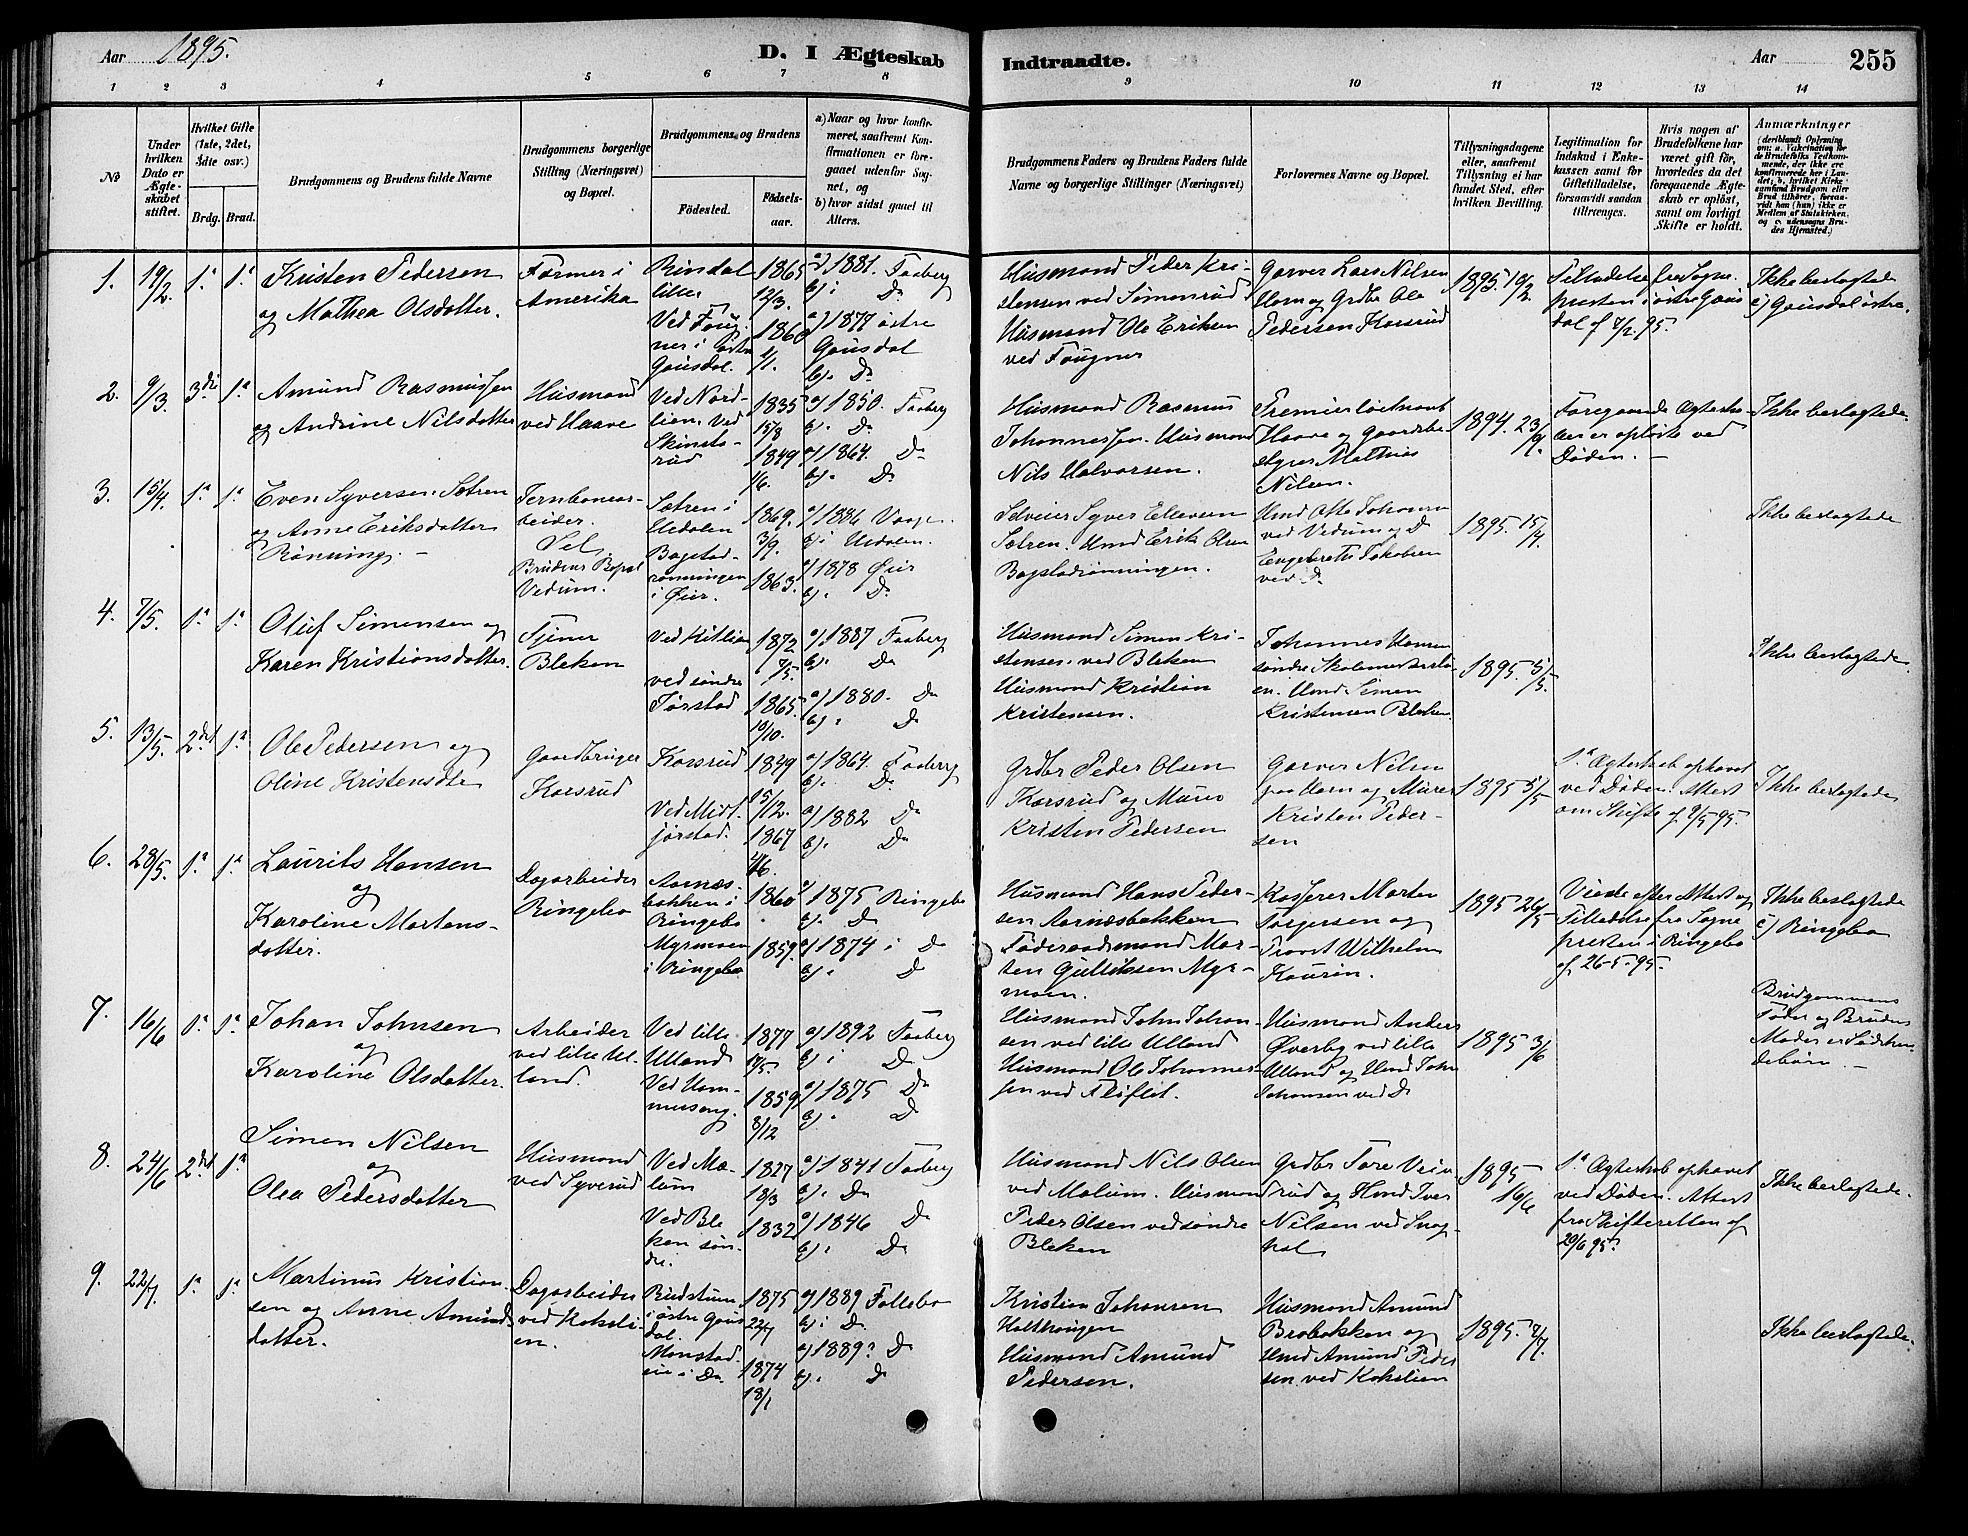 Aar 1895.
D. I Ægteskab Indtraadte.
Aar 255
1 2 3 4 5 6 7 8 9 10 11 12 13 14
No
Under hvilken Dato er Ægteskabet stiftet.
Hvilket Gifte (1ste, 2det, 3dte osv.)
Brdg. Brud.
Brudgommens og Brudens fulde Navne
Brudgommens borgerlige Stilling (Næringsvei) og Bopæl.
Brudgommens og Brudens
Fødested.
Fødselsaar.
a) Naar og hvor konfirmeret, saafremt Konfirmationen er foregaaet udenfor Sognet, og
b) hvor sidst gaaet til Alters.
Brudgommens Faders og Brudens Faders fulde Navne og borgerlige Stillinger (Næringsvei)
Forlovernes Navne og Bopæl.
Tillysningsdagene eller, saafremt Tillysning ei har fundet Sted, efter hvilken Bevilling.
Legitimation for Indskud i Enkekassen samt for Giftetilladelse, forsaavidt saadan tiltrænges.
Hvis nogen af Brudefolkene har været gift før, hvorledes da det foregaaende Ægteskab er opløst, samt om lovligt Skifte er holdt.
Anmærkninger
(deriblandt Oplysning om: a. Vakcination for de Brudefolks Vedkommende, der ikke ere konfirmerede her i Landet; b. hvilket Kirkesamfund Brudgom eller Brud tilhører, forsaavidt han (hun) ikke er Medlem af Statskirken, og c. udensogns Brudes Hjemsted.)
1. 19/2. 1ª 1ª
Kristen Pedersen
og Mathea Olsdatter.
Farmer i
Amerika
Rindal
lille
Ved Foug-
ner i Østre
Gausdal.
1865
12/3.
1860
1/1.
a) 1881. Faaberg
b) i Do
a) 1877 østre
Gausdal
b). Do
Husmand Peder Kri-
stensen ved Simenrud
Husmand Ole Eriksen
ved Fougner
Garver Lars Nilsen
Horn og Grdbr Ole
Pedersen Korsrud
1895. 10/2.
Tilladelse fra Sogne-
presten i østre Gaus
dal af 7/2. 95.
Ikke beslægtede
c) Gausdal østre.
2. 9/3. 3die 1ª
Amund Rasmussen
og Andrine Nilsdatter
Husmand
ved Haave
Ved Nord-
lien. Ved
Skinds-
rud
1835
15/8
1849
1/6.
a) 1850. Faaberg
b). Do
a) 1864. Do
b). Do
Husmand Rasmus
Johannessen. Husmand
Nils Halvorsen.
Premierløitnant
Haave og Gaardbe-
styrer Mathias
Nilsen.
1894. 23/9.
Foregaaende Ægteska-
ber er opløste ved
Døden. –
Ikke beslægtede
3. 15/4. 1ª 1ª
Even Syversen Sætren
og Anne Eriksdatter
Rønning. –
Jernbanear-
beider.
Sel,
Brudens Bopæl
Vedum.
Sætren i
Hedalen
Bagstad-
rønningen
i Øier.
1869.
3/9.
1863.
a) 1886 Vaage
b) i Hedalen.
a) 1878 Øier
b). Do
Selveier Syver Ellevsen
Sætren. Hmd Erik Olsen
Bagstadrønningen.
Hmd Otto Johansen
ved Vedum og Do
Engebreth Jakobsen
ved Do
1895. 15/4.
Ikke beslægtede
4. 7/5. 1ª 1ª
Oluf Simensen og
Karen Kristiansdatter.
Tjener
Bleken
Ved Kitlien
ved søndre
Jørstad
1872
7/5.
1865.
10/10.
a) 1887 Faaberg
b). Do
a) 1880. Do
b). Do
Husmand Simen Kri-
stensen ved Bleken
Husmand Kristian
Kristensen.
Johannes Hansen
søndre Skolmerslu
en. Hmd Simen
Kristensen Bleken
1895. 5/5.
Ikke beslægtede
5. 13/5. 2det 1ª
Ole Pedersen og
Oline Kristensdtr
Gaardbruger
Korsrud
Korsrud
Ved Midt-
jørstad.
1849
15/12.
1867
a) 1864. Faaberg
b). Do
a) 1882 Do
b). Do
Grdbr Peder Olsen
Korsrud og Murer
Kristen Pedersen
Garver Nilsen
paa Horn og Murer
Kristen Peder-
sen
1895 5/5
1ª Ægteskab ophævet
ved Døden. Attest
om Skifte af 9/5 95.
Ikke beslægtede
6. 28/5. 1ª 1ª
Laurits Hansen
og
Karoline Mortens-
datter.
Dagarbeider
Ringebo
Aarnæs-
bakken i
Ringebo
Myrmoen
i Ringebo
1860
1859.
a) 1875 Ringebo
b). Do
a) 1874 i Do
b). Do
Husmand Hans Peder-
sen Aarnæsbakken
Føderaadsmand Mor-
ten Gulliksen Myr-
moen.
Kasserer Morten
Torgersen og
Provst Wilhelm
Kaurin.
1895 26/5
Viede efter Attest og
Tilladelse fra Sogne
presten i Ringebo
af 26-5-95.
Ikke beslægtede
c) Ringebo
7. 16/6 1ª 1ª
Johan Johnsen
og
Karoline Olsdatter.
Arbeider
ved lille Ul-
land.
Ved lille
Ulland
Ved Ham-
mereng.
1877
17/5.
1859
8/12
a) 1892 Faaberg
b) i Do
a) 1875 Do
b). Do
Husmand John Johan-
sen ved lille Ulland
Husmand Ole Johannes-
sen ved Fliflet.
Husmand Anders
Øverby ved lille
Ulland og Hmd John
Johansen ved Do
1895 3/6
Brudgommens
Fader og Brudens
Moder er Sødsken-
debørn. –
8. 24/6 2det 1ª
Simen Nilsen
og
Olea Pedersdatter
Husmand
ved Syverud
Ved Mæ-
lum
Ved Ble
ken søn-
dre.
1827
18/3
1832
a) 1841 Faaberg
b). Do
a) 1846 Do
b). Do
Husmand Nils Olsen
ved Mælum. Husmand
Peder Olsen ved søndre
Bleken
Grdbr Tore
rud og Hmd Iver
Nilsen ved
1895
16/6
1ª Ægteskab ophævet
ved Døden. Attest
fra Skifteretten af
20/6 95.
Ikke beslægtede.
9. 22/7. 1ª 1ª
Martinus Kristian-
sen og Anne Amunds-
datter.
Dagarbeider
ved Koksli-
en.
Rudstuen
i østre Gaus
dal.
Monstad-
eie i Do.
1875
22/7
1874
18/1
a) 1889 Follebo
b) i Do
a) 1889? Do
b). Do
Kristian Johansen
Holthaugen
Husmand Amund
Pedersen.
Husmand Amund
Brobakken og
Hmd Amund Peder
sen ved Kokslien
1895. 7/7.
Ikke beslægtede.